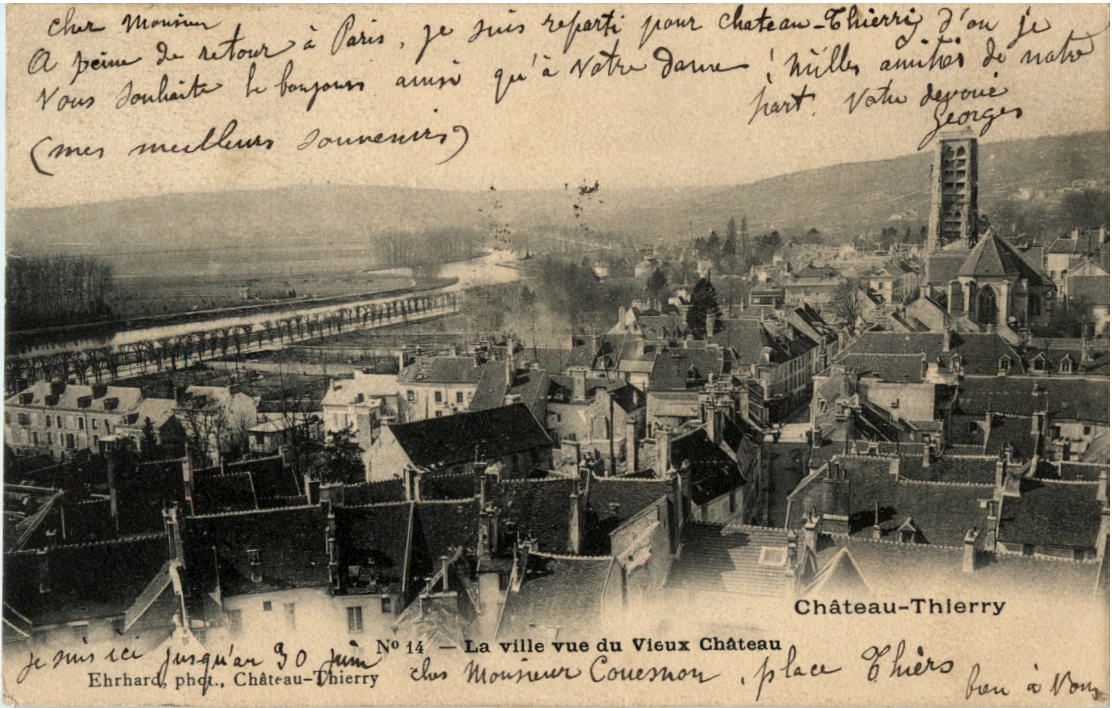 cher Monsieur
A peine de retour à Paris, je suis reparti pour chateau-Thierri d'ou je
vous souhaite le bonjours ainsi qu'à Votre dame ! Milles amitiés de notre
part. Votre devoué
Georges
(mes meilleurs souvenirs)
Château-Thierry
No 14 — La ville vue du Vieux Château
je suis ici jusqu'au 30 juin
Ehrhard, phot., Château-Thierry
ches Monsieur Couesnon, place Thiers
bien à Vous